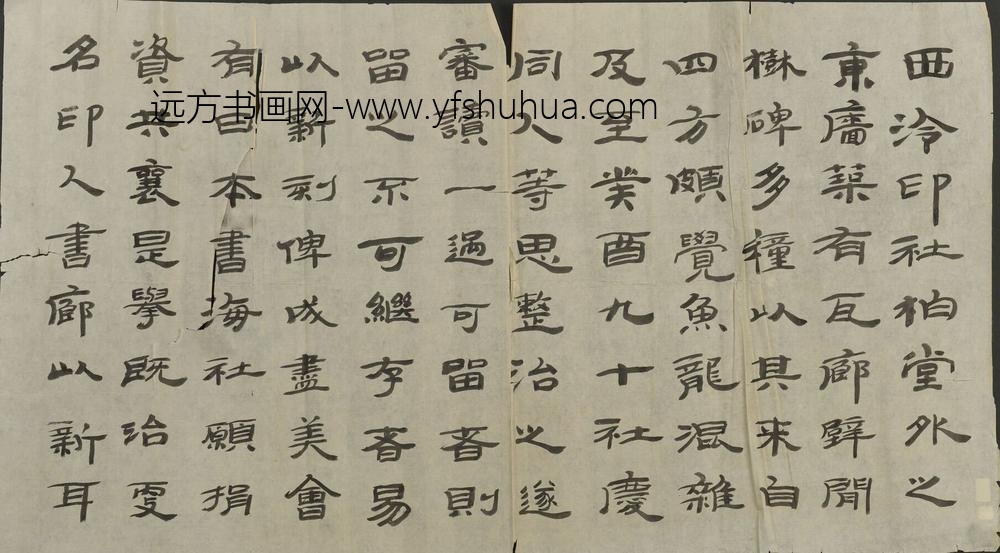 西泠印社柏堂外之
東廧築有瓦廊壁間
樹碑多種以其来自
四方頗覺魚龍混雜
及至癸酉九十社慶
同人等思整治之遂
審讀一過可留者則
留之不可繼存者易
以新刻俾成盡美會
有日本書海社願捐
資共襄是舉既治更
名印人書廊以新耳
远方书画网-www.yfshuhua.com